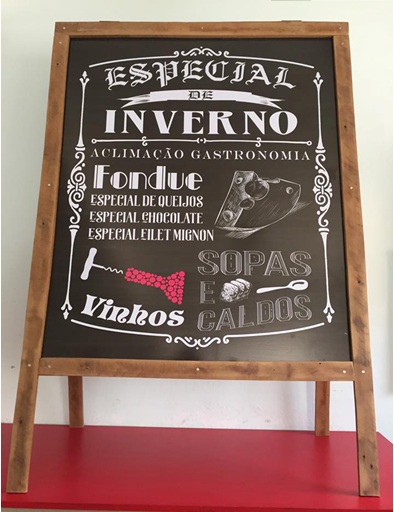 ESPECIAL
DE
INVERNO
ACLIMAÇÃO GASTRONOMIA
Fondue
ESPECIAL DE QUEIJOS
ESPECIAL CHOCOLATE
ESPECIAL EILET MIGNON
Vinhos
SOPAS
E
CALDOS